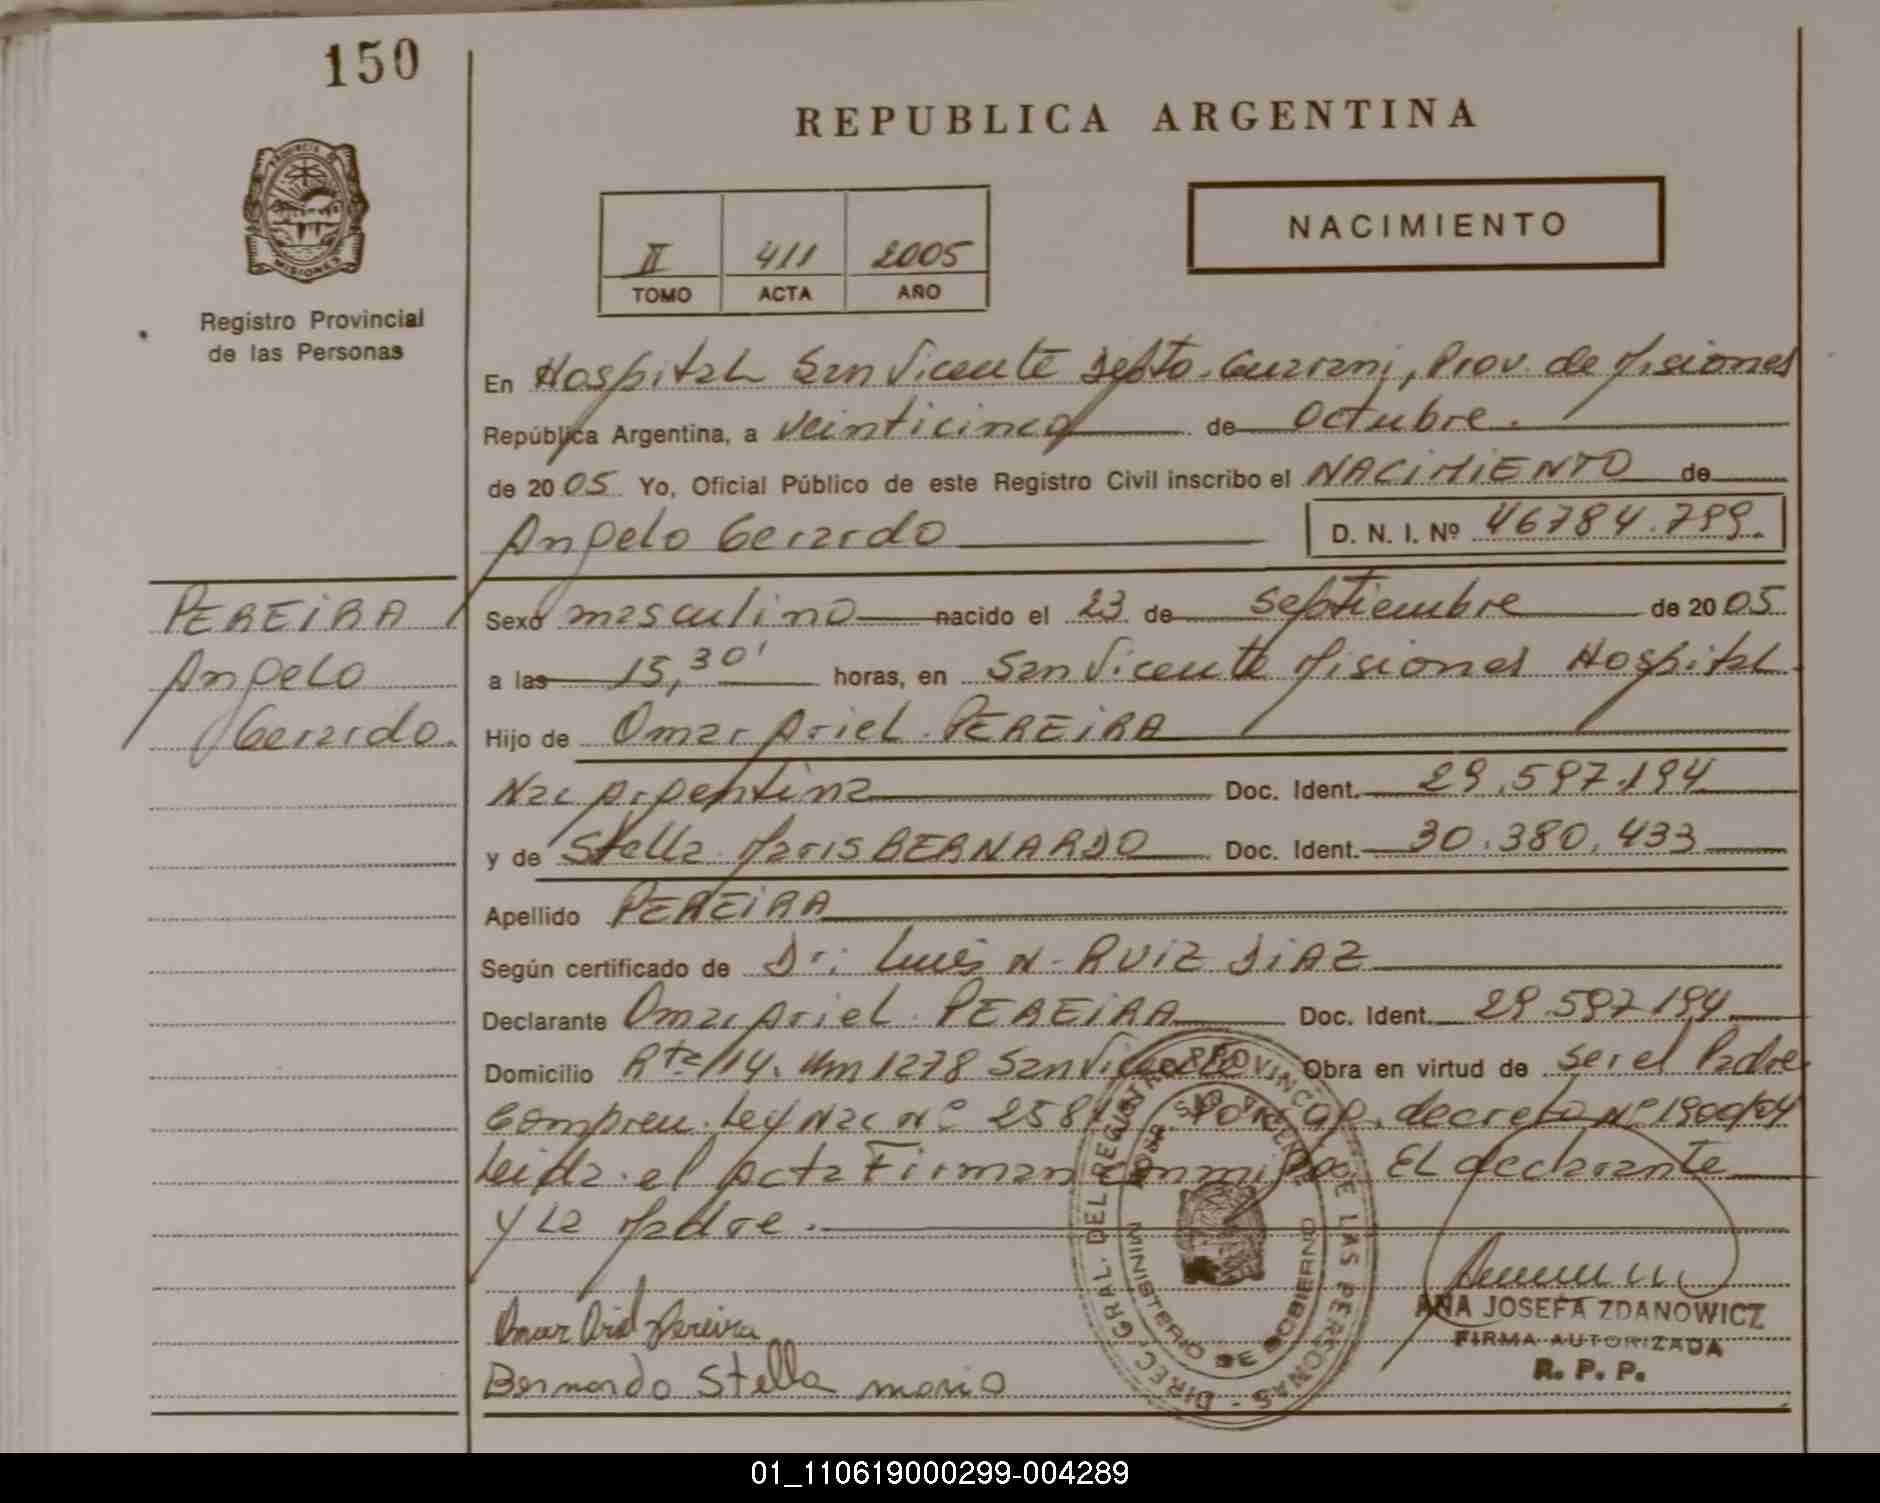 150
REPUBLICA ARGENTINA
PROVINCIA DE MISIONES
Registro Provincial
de las Personas
II 411 2005
TOMO ACTA AÑO
NACIMIENTO
En Hospital San Vicente Depto. Guarani, Prov. de Misiones
República Argentina, a veinticinco de Octubre.
de 2005 Yo, Oficial Público de este Registro Civil inscribo el NACIMIENTO de
Angelo Gerardo D. N. I. Nº 46784.799.
PEREIRA
Angelo
Gerardo.
Sexo masculino nacido el 23 de Septiembre de 2005
a las 15,30' horas, en San Vicente Misiones Hospital
Hijo de Omar Ariel PEREIRA
Nac Argentina Doc. Ident. 29.597.194
y de Stella Maris BERNARDO Doc. Ident. 30.380.433
Apellido PEREIRA
Según certificado de Dr: Luis N. RUIZ DIAZ
Declarante Omar Ariel PEREIRA Doc. Ident. 29.597194
Domicilio Rta 14. Km 1278 San Vicente Obra en virtud de ser el Padre
Ley Nac Nº decreto Nº 1900/04
Leida el acta Firman conmigo EL declarante
y La Madre.
Omar Ariel Pereira
Bernardo Stella maris
DIREC. GRAL. DEL REGISTRO PROVINCIAL DE LAS PERSONAS -
MINISTERIO DE GOBIERNO
SAN VICENTE
ANA JOSEFA ZDANOWICZ
FIRMA AUTORIZADA
R. P. P.
01_110619000299-004289